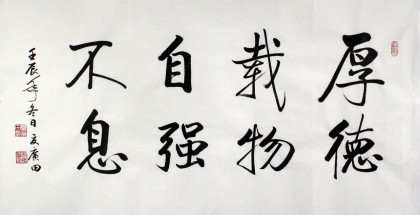 厚德
载物
自强
不息
壬辰年冬日友广田